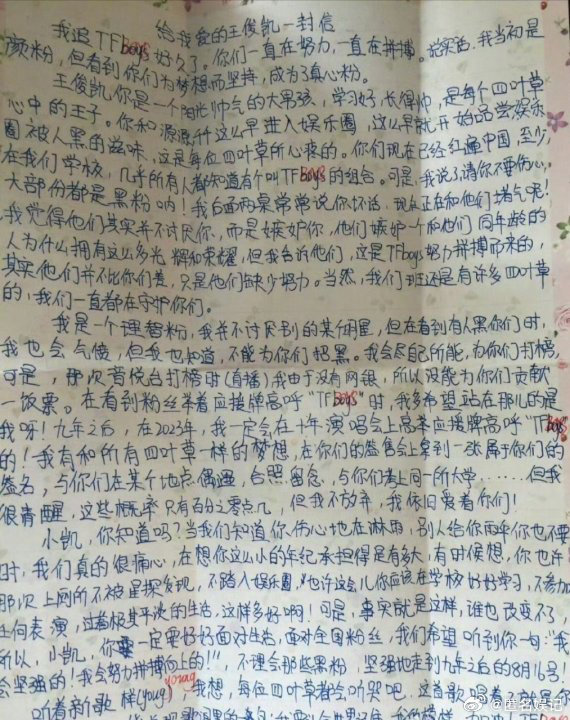 给我爱的王俊凯一封信
我追TFboys好久了。你们一直在努力,一直在拼搏。说实话,我当初是
颜粉,但看到你们为梦想而坚持,成为了真心粉。
王俊凯,你是一个阳光帅气的大男孩,学习好,长得帅,是每个四叶草
心中的王子。你和源源,千千这么早进入娱乐圈,这么早就开始品尝娱乐
圈被人黑的滋味,这是每位四叶草所心疼的。你们现在已经红遍中国,至少,
在我们学校,几乎所有人都知道有个叫TFboys的组合。可是,我说了请你不要伤心,
大部份都是黑粉呐!我后面两桌常常说你坏话,现在正在和他们堵气呢!
我觉得他们其实并不讨厌你,而是嫉妒你,他们嫉妒一个和他们同年龄的
人为什么拥有这么多光辉和荣耀,但我告诉他们,这是TFboys努力拼搏而来的,
其实他们并不比你们差,只是他们缺少努力。当然,我们班还是有许多四叶草
的,我们一直都在守护你们。
我是一个理智粉,我并不讨厌别的某个明星,但在看到有人黑你们时,
我也会气愤,但我也知道,不能为你们招黑。我会尽自己所能,为你们打榜,
可是,那次音悦台打榜时(直播)我由于没有网银,所以没能为你们贡献
一饭票。在看到粉丝举着应援牌高呼“TFboys”时,我多希望站在那儿的是
我呀!九年之后,在2023年,我一定会在十年演唱会上高举应援牌高呼“TFboys”
的!我有和所有四叶草一样的梦想,在你们的签售会上拿到一张属于你们的
签名,与你们在某个地点偶遇,合照留念,与你们考上同一所大学………但我
很清醒,这些概率只有百分之零点几,但我不放弃,我依旧爱着你们!
小凯,你知道吗?当我们知道你伤心地在淋雨,别人给你雨伞你也不要
时,我们真的很痛心,在想你这么小的年纪承担得是有多大,有时候想,你也许
那次上网所不被星探发现,不踏入娱乐圈,也许这会儿你应该在学校好好学习,不参加
任何表演,过着极其平淡的生活,这样多好啊!可是,事实就是这样,谁也改变不了,
所以,小凯,你要一定要好好面对生活,面对全国粉丝,我们希望听到你一句:“我
会坚强的!我会努力拼搏向上的!”,不理会那些黑粉,坚强地走到九年之后的8月6号!
听着新歌样(young)young我想,每位四叶草都会听哭吧,这首歌